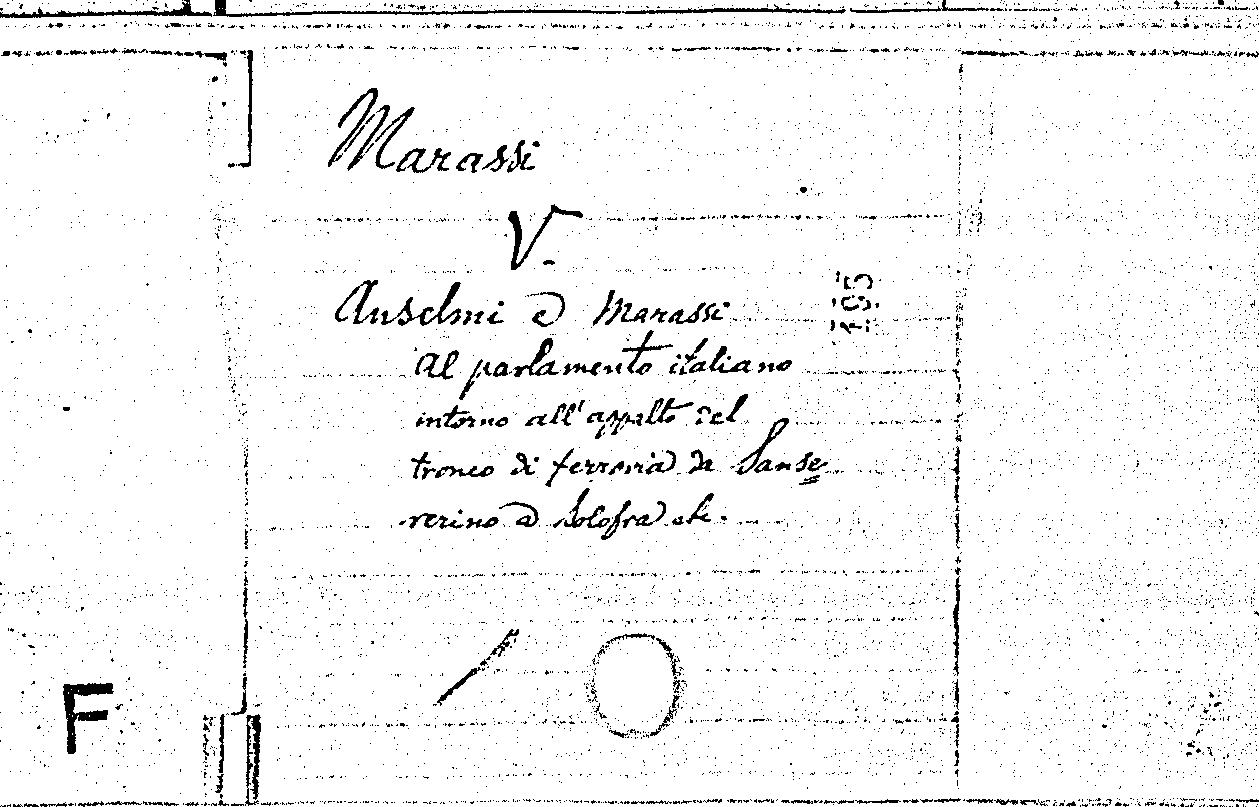 Marassi
V.
Anselmi e Marassi
Al parlamento italiano
intorno all'appalto del
tronco di ferrovia da Sanse
verino a Solofra etc.
F